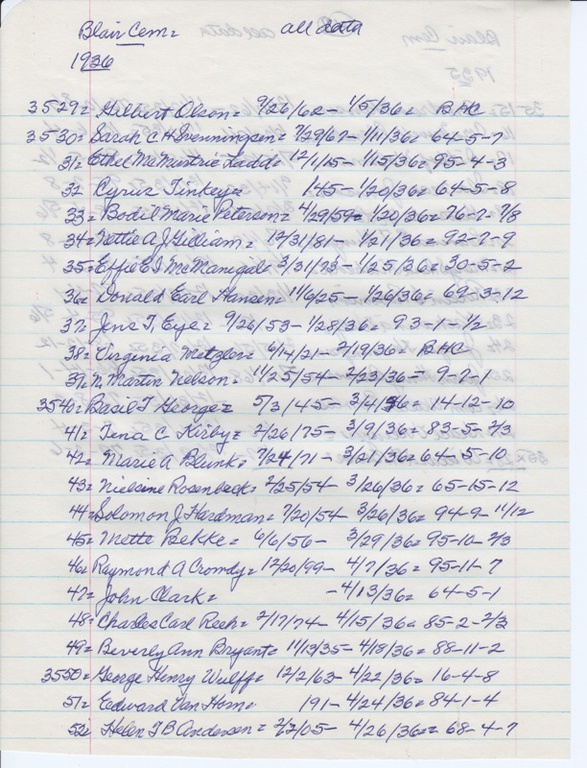 Blair Cem= all data
1936
3529= Hilbert Olson= 9/26/62- 1/5/36= BHC
3530= Sarah C H Svenningsen= 7/29/67- 1/11/36= 64-5-7
31= Ethel McMestrie Ladd= 12/1/15- 1/15/36= 95-4-3
32 Cyrus Tinkey= 1845- 1/20/36= 64-5-8
33= Bodil Marie Peterson= 4/29/59= 1/20/36= 76-7-7/8
34= Nettie A J Gilliam= 12/31/81- 1/21/36= 92-7-9
35= Effie E I McManigal= 3/31/73- 1/25/36= 30-5-2
36= Donald Earl Hansen= 11/6/25- 1/26/36= 69-3-12
37= Jens T, Eye= 9/26/53- 1/28/36= 93-1-1/2
38= Virginia Metzler= 6/14/21- 2/19/36= BHC
39= N Martin Nelson= 11/25/54- 2/23/36= 9-7-1
3540= Basil T George= 5/3/45- 3/4/36= 14-12-10
41= Tena C Kirby= 2/26/75- 3/9/36= 83-5-2/3
42= Marie A Blunk= 7/24/71- 3/21/36= 64-5-10
43= Nielsine Rosenbeck= 2/25/54- 3/26/36= 65-15-12
44= Solomon J Hardman= 7/20/54- 3/26/36= 94-9-11/12
45= Mette Bekke= 6/6/56- 3/29/36= 95-10-2/3
46= Raymond A Crowdy= 12/20/99- 4/7/36= 95-11-7
47= John Clark= -4/13/36= 64-5-1
48= Charles Carl Reeh= 2/17/74- 4/15/36= 85-2-2/3
49= Beverly Ann Bryant= 11/13/35- 4/18/36= 88-11-2
3550= George Henry Wulff= 12/2/63- 4/22/36= 16-4-8
51= Edward Van Horn= 191- 4/24/36= 84-1-4
52= Helen T B Andersen= 2/2/05- 4/26/36= 68-4-7